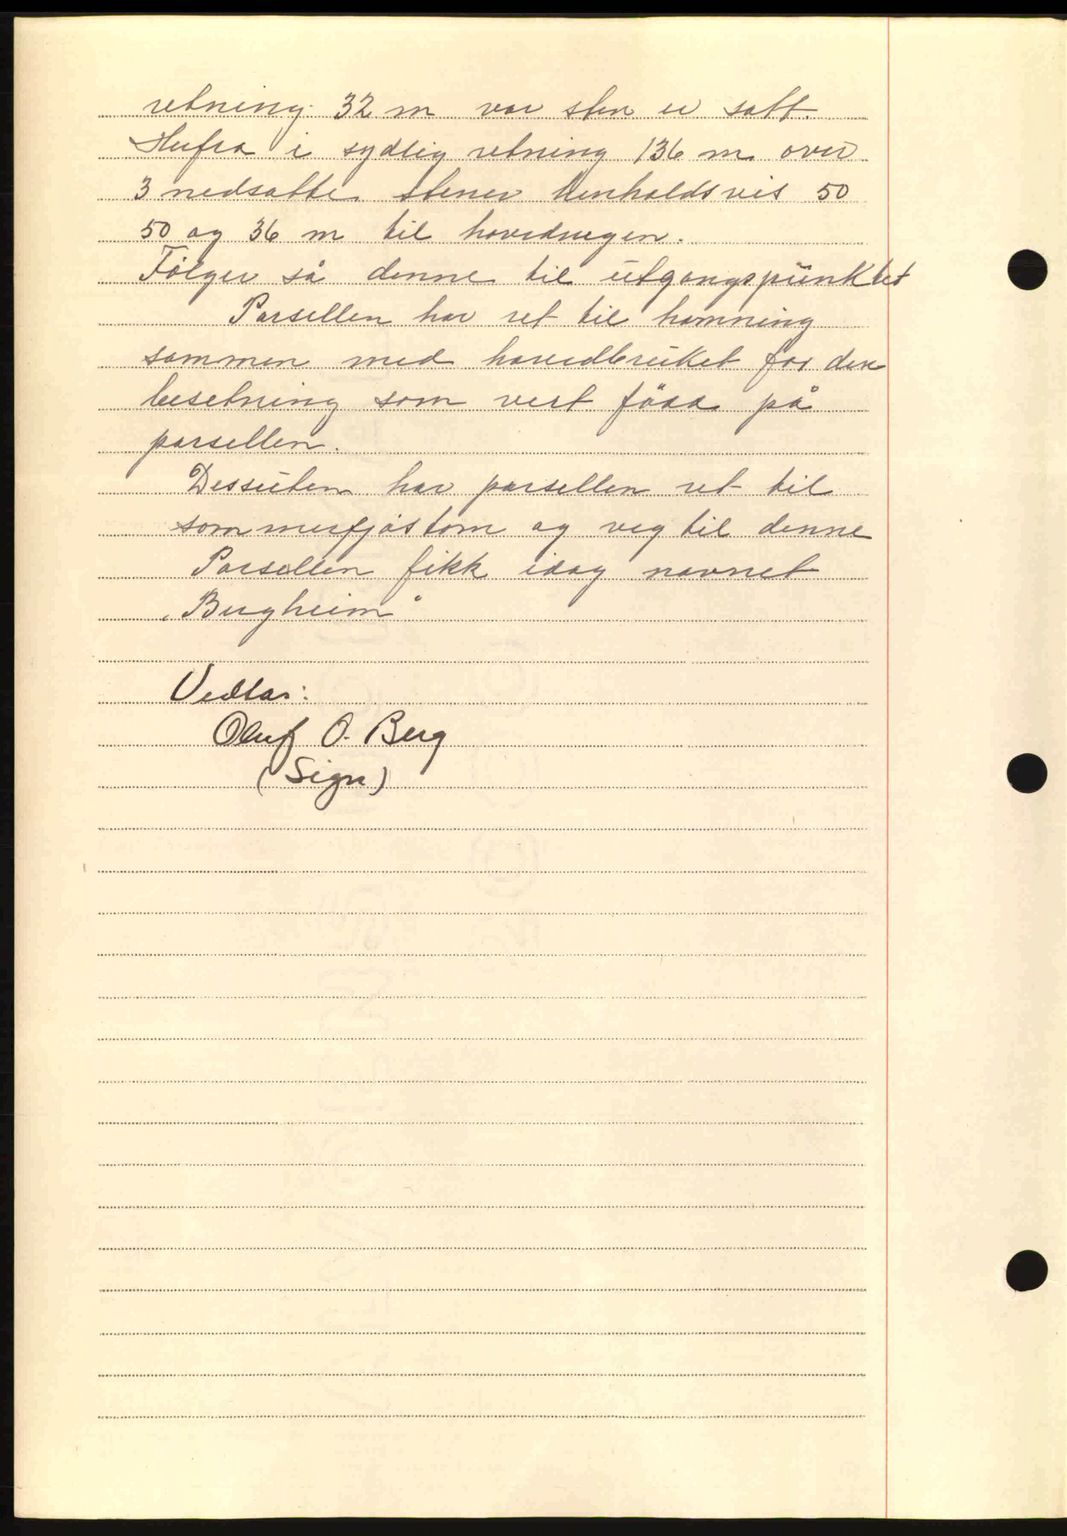 retning 32 m vor sten er satt.
Herfra i sydlig retning 136 m over
3 nedsatte stener henholdsvis 50
50 og 36 m til hovedvegen.
Følger så denne til utgangspunktet
Parsellen har ret til hamning
sammen med hovedbruket for den
besetning som vert född på
parsellen.
Dessuten har parsellen ret til
sommerfjøstom og veg til denne
Parsellen fikk idag navnet
"Bergheim"
Vedtas:
Oluf O. Berg
(Sign)